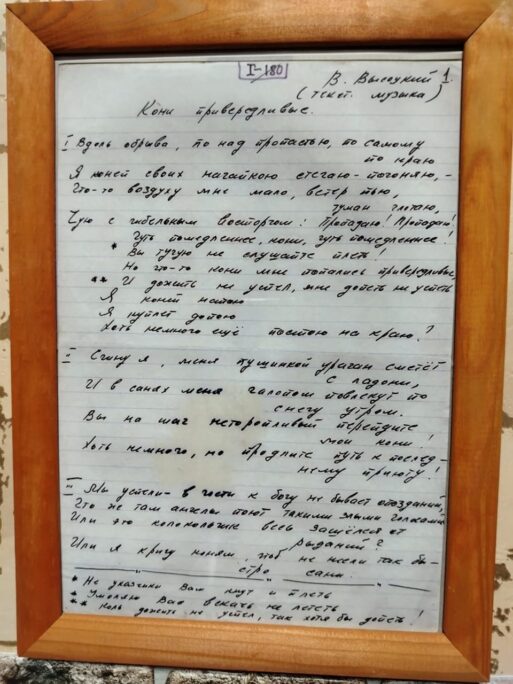 I-180
В. Высоцкий 1.
(текст. музыка)
Кони привередливые.
I Вдоль обрыва, по над пропастью, по самому
по краю
Я коней своих нагайкою стегаю-погоняю, -
Что-то воздуху мне мало, ветер пью,
туман глотаю,
Чую с гибельным восторгом: Пропадаю! Пропадаю!
Чуть помедленнее, кони, чуть помедленнее!
* Вы тугую не слушайте плеть!
Но что-то кони мне попались привередливые,
** И дожить не успел, мне допеть не успеть
Я коней напою
Я куплет допою
Хоть немного ещё постою на краю?
II Сгину я, меня пушинкой ураган сметёт
с ладони,
И в санях меня галопом повлекут по
снегу утром.
Вы на шаг неторопливый перейдите
мои кони!
Хоть немного, но продлите путь к послед-
нему приюту!
III Мы успели - в гости к богу не бывает опозданий,
Что же там ангелы поют такими злыми голосами
Или это колокольчик весь зашёлся от
рыданий?
Или я кричу коням, чтоб не несли так бы-
стро сани.
* Не указчики Вам кнут и плеть
* Умоляю Вас вскачь не лететь
** Коль дожить не успел, так хотя бы допеть!